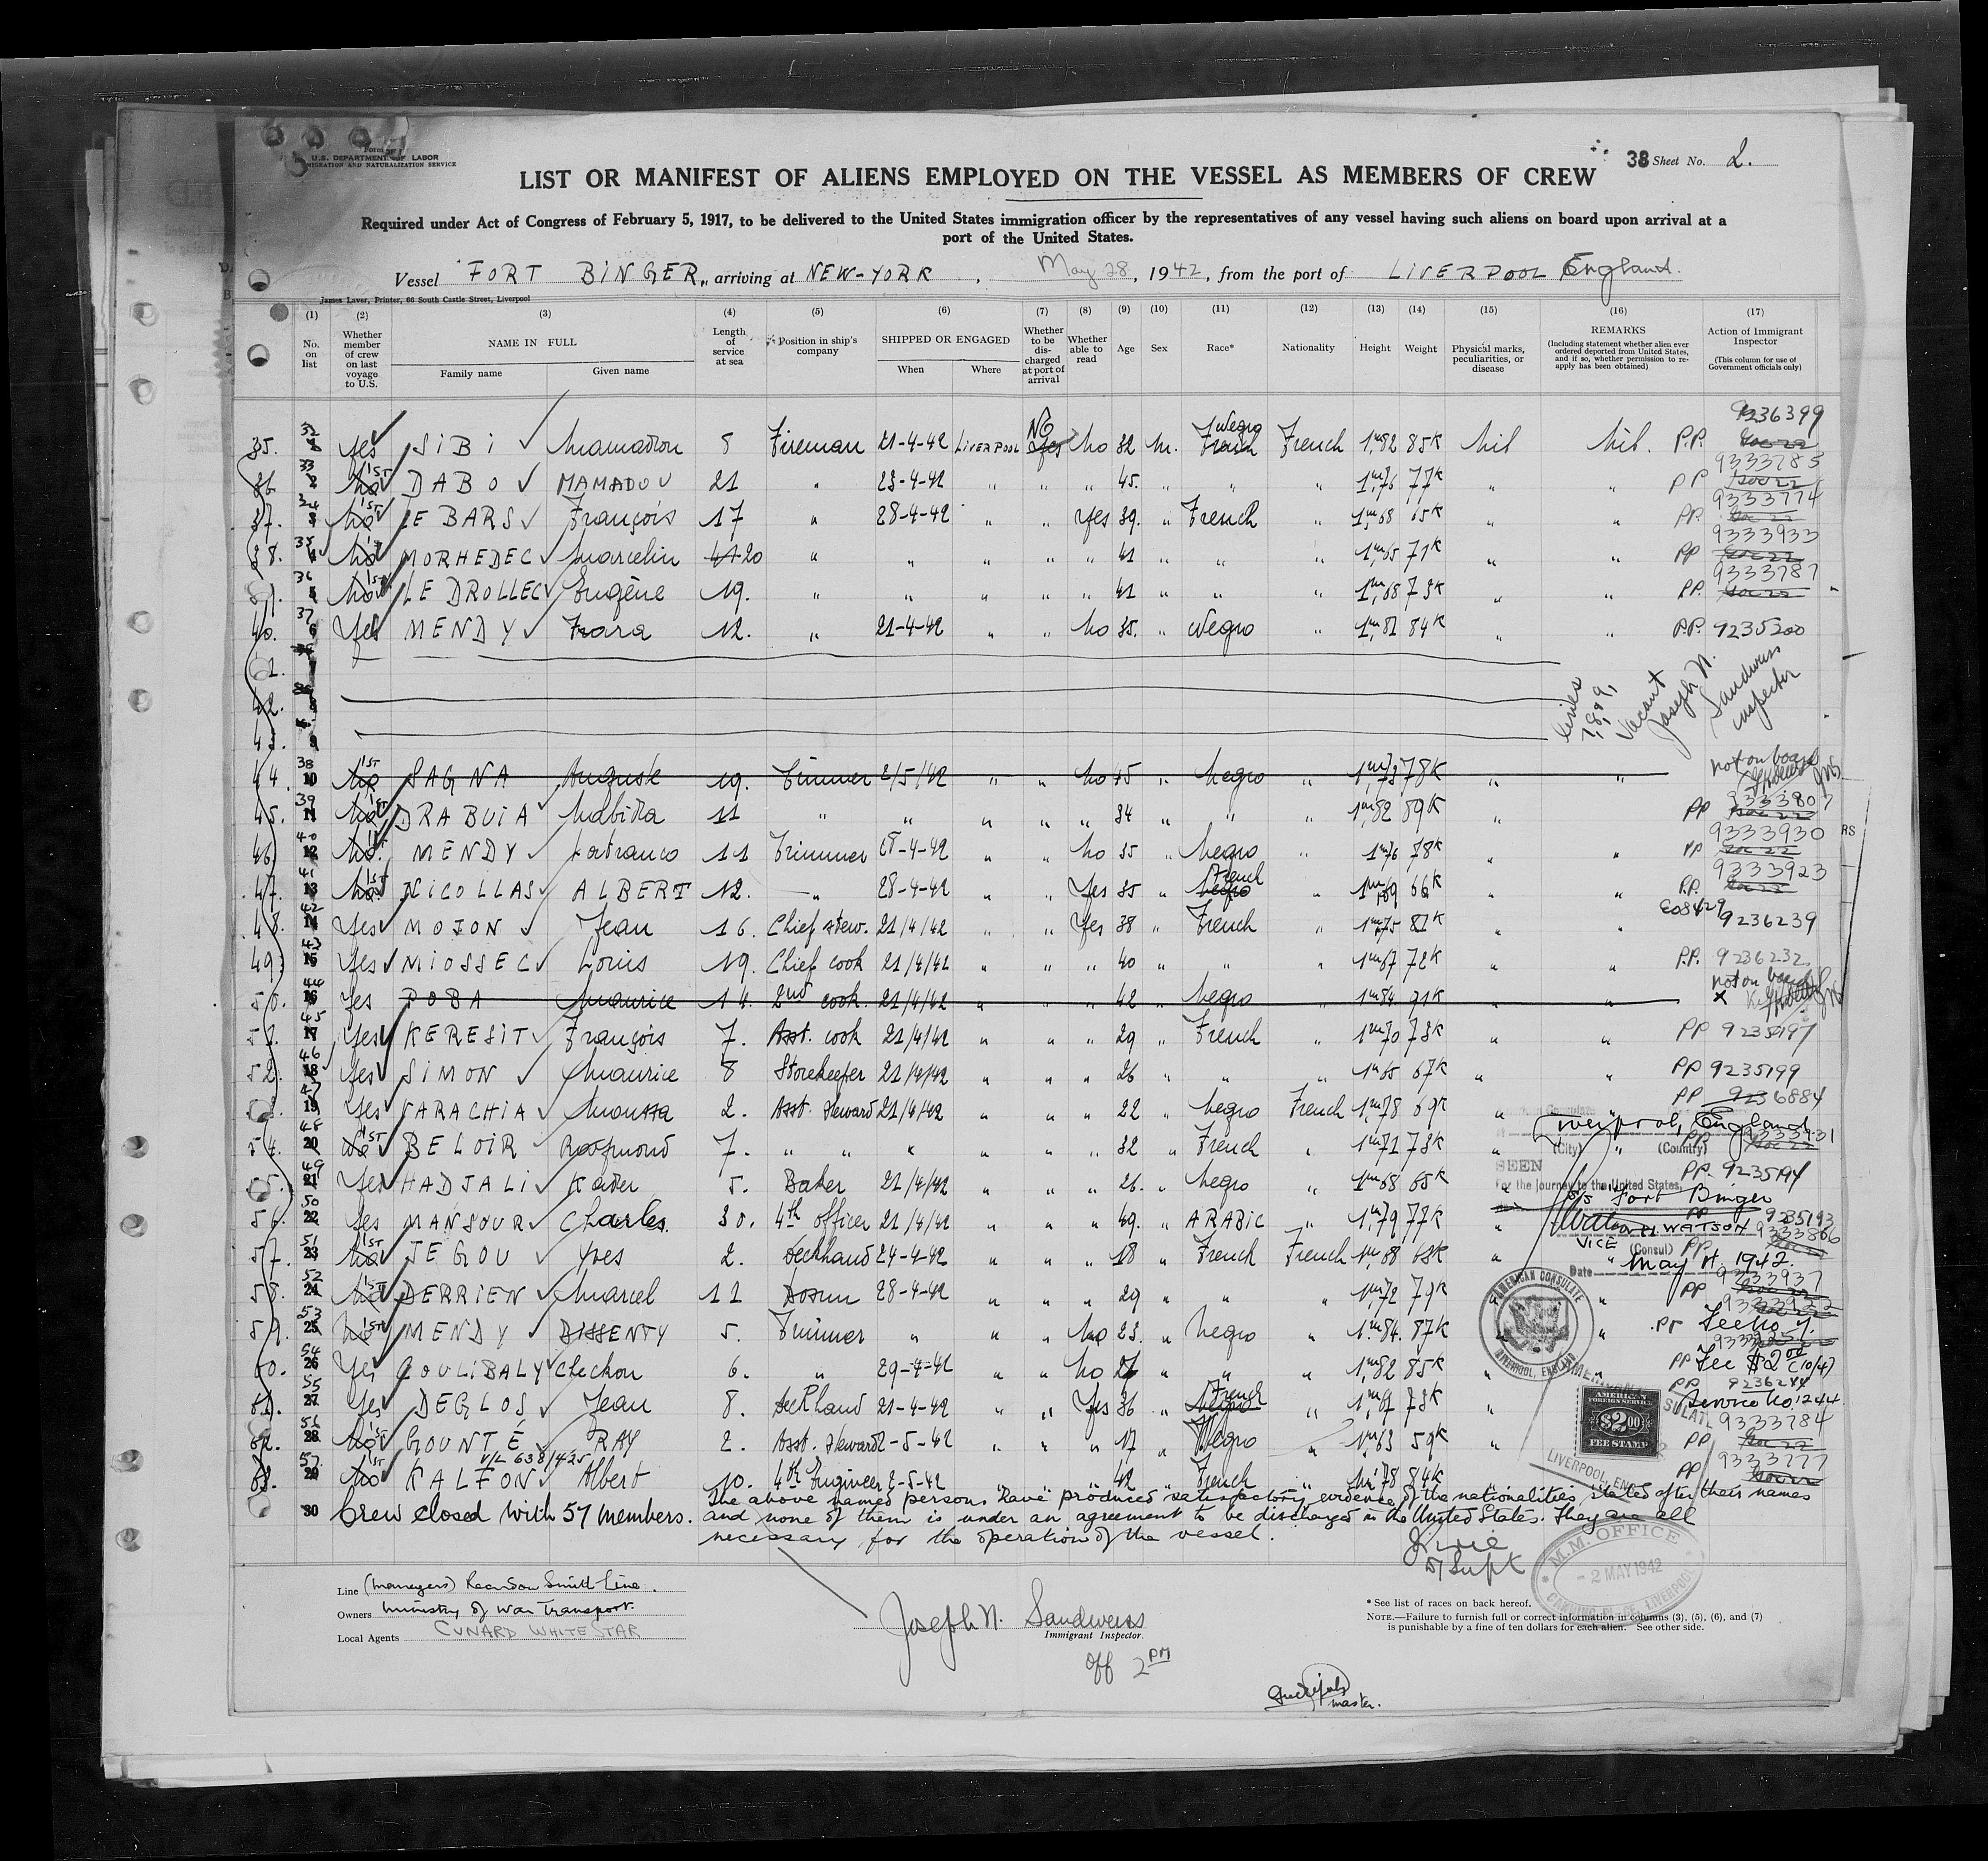 Form
U.S. DEPARTMENT OF LABOR
IMMIGRATION AND NATURALIZATION SERVICE
38 Sheet No. 2.
LIST OR MANIFEST OF ALIENS EMPLOYED ON THE VESSEL AS MEMBERS OF CREW
Required under Act of Congress of February 5, 1917, to be delivered to the United States immigration officer by the representatives of any vessel having such aliens on board upon arrival at a
port of the United States.
Vessel FORT BINGER, arriving at NEW-YORK, May 28, 1942, from the port of LIVERPOOL England.
James Laver, Printer, 66 South Castle Street, Liverpool
(1) (2) (3) (4) (5) (6) (7) (8) (9) (10) (11) (12) (13) (14) (15) (16) (17)
No. on list
Whether member of crew on last voyage to U.S.
NAME IN FULL
Family name Given name
Length of service at sea
Position in ship's company
SHIPPED OR ENGAGED
When Where
Whether to be discharged at port of arrival
Whether able to read
Age Sex Race* Nationality Height Weight
Physical marks, peculiarities, or disease
REMARKS
(Including statement whether alien ever ordered deported from United States, and if so, whether permission to reapply has been obtained)
Action of Immigrant Inspector
(This column for use of Government officials only)
35. 32 Yes SIBI Mamadou 8 Fireman 21-4-42 LIVERPOOL NO Yes No 32 M. Negro French French 1m,82 85K Nil Nil. P.P. 9236399
36. 33 2 No 1ST DABO MAMADOU 21 " 23-4-42 " " " 45. " " " 1m,76 77K " " PP 9333785
37. 34 3 No 1ST LE BARS François 17 " 28-4-42 " " Yes 39. " French " 1m,68 65K " " PP. 9333774
38. 35 4 No MORHEDEC Marcelin 20 " " " " " 41 " " " 1m,65 71K " " PP 9333933
36 5 No 1ST LE DROLLEC Eugène 19. " " " " " 41 " " " 1m,68 73K " " PP. 9333787
40. 37 6 Yes MENDY 12. " 21-4-42 " " No 35. " Negro " 1m,81 84K " " P.P. 9235200
7
42. 8
43. 9
Lines 7, 8, & 9, Vacant Joseph N. Sandweiss Inspector
44. 38 10 No 1ST SAGNA Auguste 19. Trimmer 2/5/42 " " No 45 " Negro " 1m,73 78K " " not on board
45. 39 11 No 1ST DRABUIA 11 " " " " " 34 " " " 1m,82 89K " PP 9333807
46. 40 12 No MENDY 11 Trimmer 28-4-42 " No 35 " Negro " 1m,76 78K " " PP 9333930
47. 41 13 No 1ST NICOLLAS ALBERT 12. " 28-4-42 " Yes 35 " French Negro " 1m,69 66K " " P.P. 9333923
48. 42 14 Yes MOJON Jean 16. Chief Stew. 21/4/42 " " Yes 38 " French " 1m,75 81K " " 9236239
49. 43 15 Yes MIOSSEC Louis 19. Chief cook 21/4/42 " " " 40 " " " 1m,67 72K " " P.P. 9236232
50. 44 16 Yes POBA Maurice 14. 2nd cook 21/4/42 " " " 42 " Negro " 1m,84 91K " " not on board
45 17 Yes KERESIT François 7. Asst. cook 21/4/42 " " " 29 " French " 1m,70 73K " " PP 9235197
52. 46 18 Yes SIMON Maurice 8 Storekeeper 21/4/42 " " " 26 " " " 1m,65 67K " " PP 9235199
47 19 Yes Moussa 2. Asst. Steward 21/4/42 " " " 22 " Negro French 1m,78 69K " PP 9236884
54. 48 20 No 1ST BELOIR 7. " " " " " " 32 " French " 1m,71 73K " PP.
49 21 Yes HADJALI Kader 5. Baker 21/4/42 " " " 26. " Negro " 1m,68 65K PP. 9235194
56. 50 22 Yes MANSOUR Charles. 30. 4th Officer 21/4/42 " " " 49. " ARABIC " 1m,79 77K " PP 9235193
57. 51 23 No 1ST JEGOU Yves 2. Deckhand 24-4-42 " " " 18 " French French 1m,68 63K " PP. 9333866
58. 52 24 No 1ST DERRIEN Marcel 11 Bosun 28-4-42 " " " 29 " " " 1m,72 79K " PP 9333937
59. 53 25 No 1ST MENDY DISSENTY 5. Trimmer " " " No 23. " Negro " 1m,84. 87K " PP
60. 54 26 Yes COULIBALY Checkou 6. " 29-4-42 " " No " " " 1m,82 85K " PP
55 27 Yes DEGLOS Jean 8. Deckhand 21-4-42 " " Yes 36 " French Negro " 1m,67 73K " PP 9236244
62. 56 28 No 1ST GOUNTÉ RAY 2. Asst. Steward 2-5-42 " " " 17 " Negro " 1m,63 59K " PP 9333784
63. 57 29 No 1ST KALFON V/L 638/425 Albert 10. 4th Engineer 2-5-42 " " " 42 " French " 1m,78 84K PP 9333777
Liverpool, England
(City) (Country)
SEEN
For the journey to the United States,
S/S Fort Binger
WATSON
VICE (Consul)
Date May 4. 1942.
AMERICAN CONSULATE
LIVERPOOL, ENGLAND
Fee $2.00
Service No. 1244
AMERICAN
FOREIGN SERVICE
$2.00
FEE STAMP
LIVERPOOL, ENG
30 Crew closed with 57 members. The above named persons have produced satisfactory evidence of the nationalities stated after their names
and none of them is under an agreement to be discharged in the United States. They are all
necessary for the operation of the vessel.
D/Supt
M.M. OFFICE
- 2 MAY 1942
CANNING PLACE, LIVERPOOL
Line (Managers) Reardon Smith Line.
Owners Ministry of War Transport.
Local Agents CUNARD WHITE STAR
Joseph N. Sandweiss
Immigrant Inspector.
Off 2 PM
* See list of races on back hereof.
NOTE.—Failure to furnish full or correct information in columns (3), (5), (6), and (7)
is punishable by a fine of ten dollars for each alien. See other side.
master.